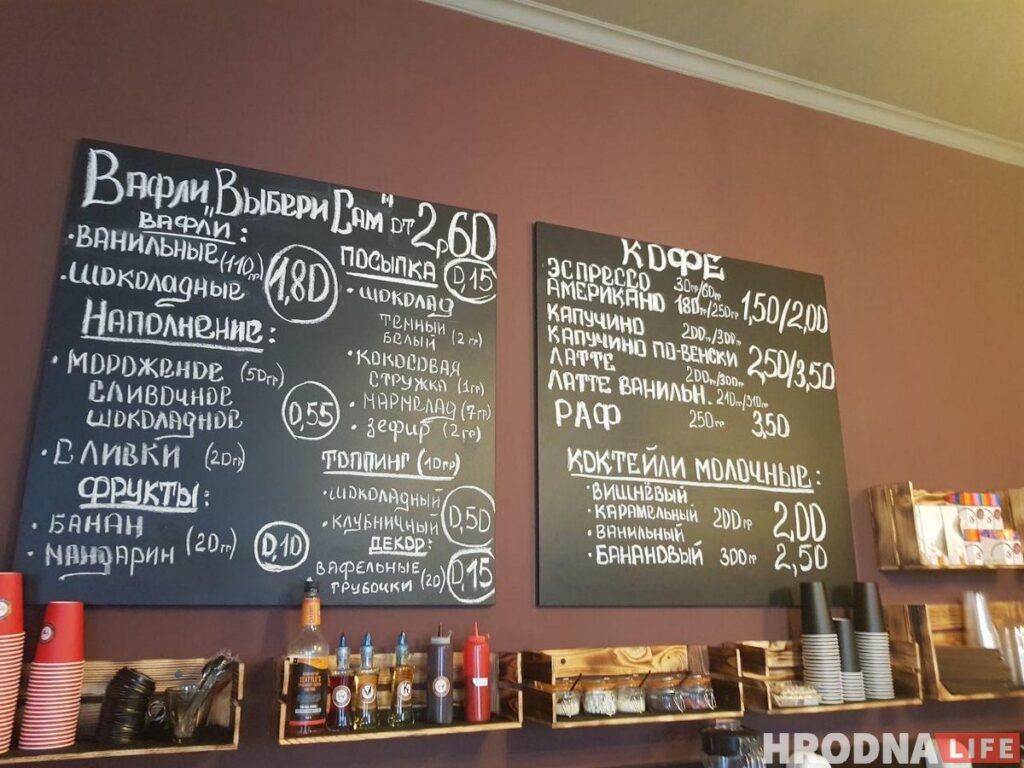 Вафли „Выбери Сам" от 2р60
Вафли:
· Ванильные (110гр)
· Шоколадные
1,80
Наполнение:
· Мороженое (50гр)
сливочное
шоколадное
0,55
· Сливки (20гр)
Фрукты:
· Банан
· Мандарин (20гр)
0,10
Посыпка 0,15
· шоколад
темный
белый (2гр)
· кокосовая
стружка (1гр)
· мармелад (7гр)
· зефир (2гр)
Топпинг (10гр)
· шоколадный
· клубничный
0,50
Декор:
вафельные
трубочки (20)
0,15
КОФЕ
ЭСПРЕССО 30гр/60гр
АМЕРИКАНО 180гр/250гр 1,50/2,00
КАПУЧИНО 200гр/300гр
КАПУЧИНО ПО-ВЕНСКИ 2,50/3,50
ЛАТТЕ 200гр/300гр
ЛАТТЕ ВАНИЛЬН. 210гр/310гр
РАФ 250гр 3,50
КОКТЕЙЛИ МОЛОЧНЫЕ:
· ВИШНЁВЫЙ
· КАРАМЕЛЬНЫЙ 200гр 2,00
· ВАНИЛЬНЫЙ
· БАНАНОВЫЙ 300гр 2,50
SEATTLE'S
HRODNA LIFE